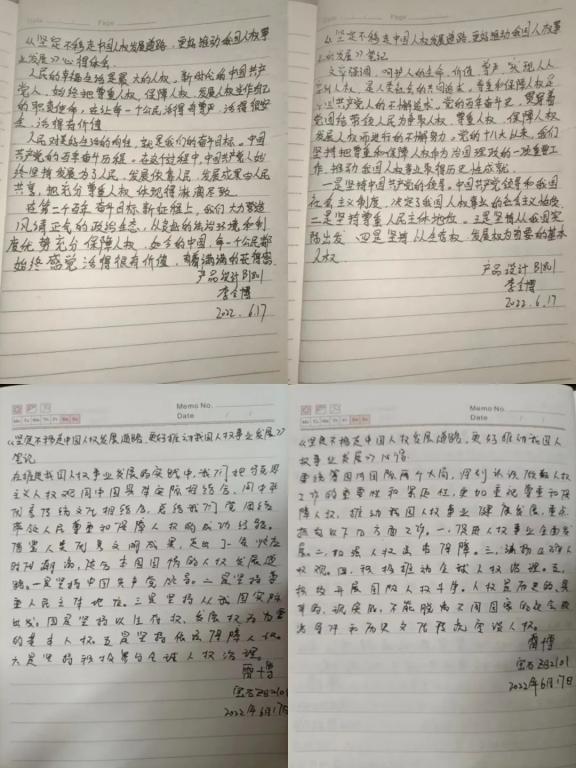 《坚定不移走中国人权发展道路,更好推动我国人权事
业发展》心得体会
人民的幸福生活是最大的人权。新时代的中国共产
党人,始终把尊重人权、保障人权、发展人权当作自己
的职责使命,在让每一个公民活得有尊严、活得很安
全、活得有价值
人民对美好生活的向往,就是我们的奋斗目标。中国
共产党的百年奋斗历程。在这个过程中,中国共产党人始
终坚持发展为了人民、发展依靠人民、发展成果由人民
共享,把充分尊重人权体现得淋漓尽致
在第二个百年奋斗目标新征程上,我们大力营造
风清正会的政治生态,以良好的法治环境和制
度优势充分保障人权,如今的中国,每一个公民都
始终感觉活得很有价值,有着满满的获得感
产品设计B1821
李全博
2022.6.17
《坚定不移走中国人权发展道路,更好推动我国人权事
业的发展》笔记
文章强调,呵护人的生命、价值、尊严,实现人人
享有人权,是人类社会的共同追求。尊重和保障人权是
中国共产党人的不懈追求。党的百年奋斗史,贯穿着
党团结带领人民为争取人权、尊重人权、保障人权、
发展人权而进行的不懈努力。党的十八大以来,我们
坚持把尊重和保障人权作为治国理政的一项重要工
作,推动我国人权事业取得历史性成就
一是坚持中国共产党的领导。中国共产党领导和我国
社会主义制度,决定了我国人权事业的社会主义性质
二是坚持尊重人民主体地位。三是坚持从我国实
际出发 四是坚持以生存权、发展权为首要的基本
人权
产品设计B1821
李全博
2022.6.17
Memo No.
Date / /
Mo Tu We Th Fr Sa Su
《坚定不移走中国人权发展道路,更好推动我国人权事业发展》
笔记
在推进我国人权事业发展的实践中,我们把马克思
主义人权观同中国具体实际相结合、同中华
优秀传统文化相结合,总结我们党团结
带领人民尊重和保障人权的成功经验,
借鉴人类优秀文明成果,走出了一条顺应
时代潮流、适合本国国情的人权发展道
路。一是坚持中国共产党领导。二是坚持尊
重人民主体地位。三是坚持从我国实际
出发。四是坚持以生存权、发展权为首要
的基本人权。五是坚持依法保障人权。
六是坚持积极参与全球人权治理。
2022年6月17日
Memo No.
Date / /
Mo Tu We Th Fr Sa Su
《坚定不移走中国人权发展道路,更好推动我国人
权事业发展》心得
要统筹国内国际两个大局,深刻认识做好人权
工作的重要性和紧迫性,更加重视尊重和保
障人权,推动我国人权事业健康发展,重点
抓好以下几方面工作。一、促进人权事业全面发
展。二、加强人权法治保障。三、弘扬正确人
权观。四、积极推动全球人权治理。五、
加快开展国际人权斗争。人权是历史的、具
体的、现实的,不能脱离不同国家的社会政
治条件和历史文化传统空谈人权。
2022年6月17日